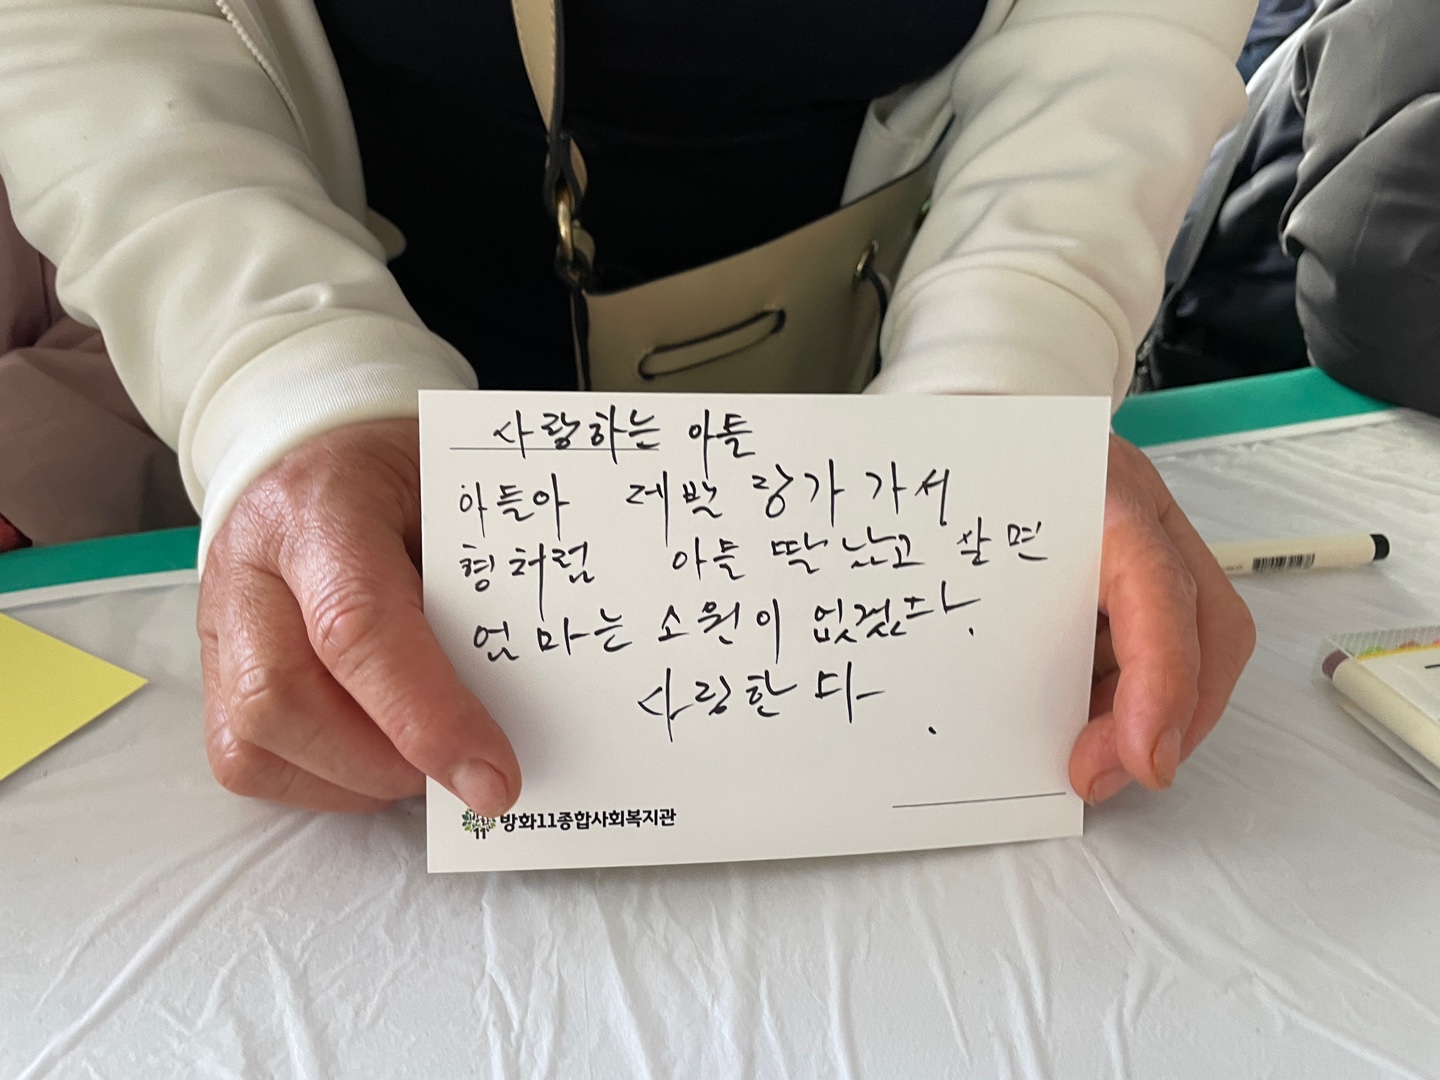 사랑하는 아들
아들아 레발 랑가 가서
형처럼 아들 딸 낳고 살면
엄마는 소원이 없겠다.
사랑한다.
방화11종합사회복지관